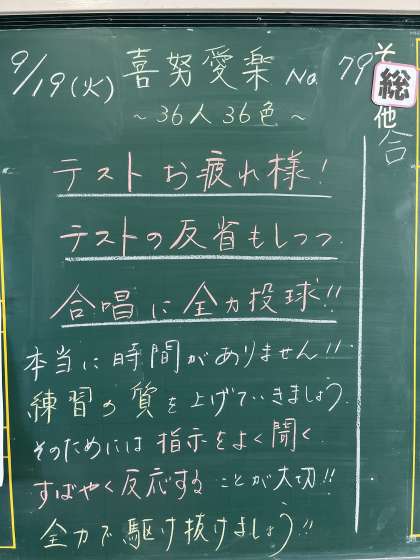 9/19(火) 喜努愛楽 No. 79
~36人36色~
テストお疲れ様!
テストの反省もしつつ
合唱に全力投球!!
本当に時間がありません!!
練習の質を上げていきましょう.
そのためには指示をよく聞く
すばやく反応することが大切!!
全力で駆け抜けましょう!!
その他
総
合